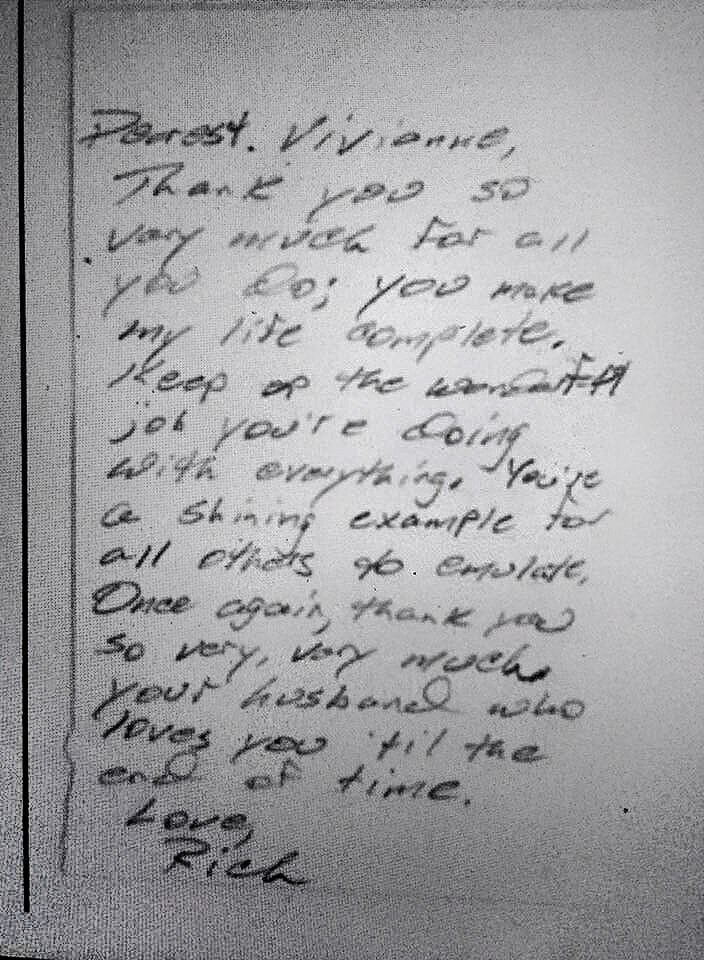 Dearest. Vivianne,
Thank you so
very much for all
you do; you make
my life complete.
Keep up the wonderful
job you're doing
with everything. You're
a shining example for
all others to emulate.
Once again, thank you
so very, very much.
your husband who
loves you 'til the
end of time.
Love,
Rich